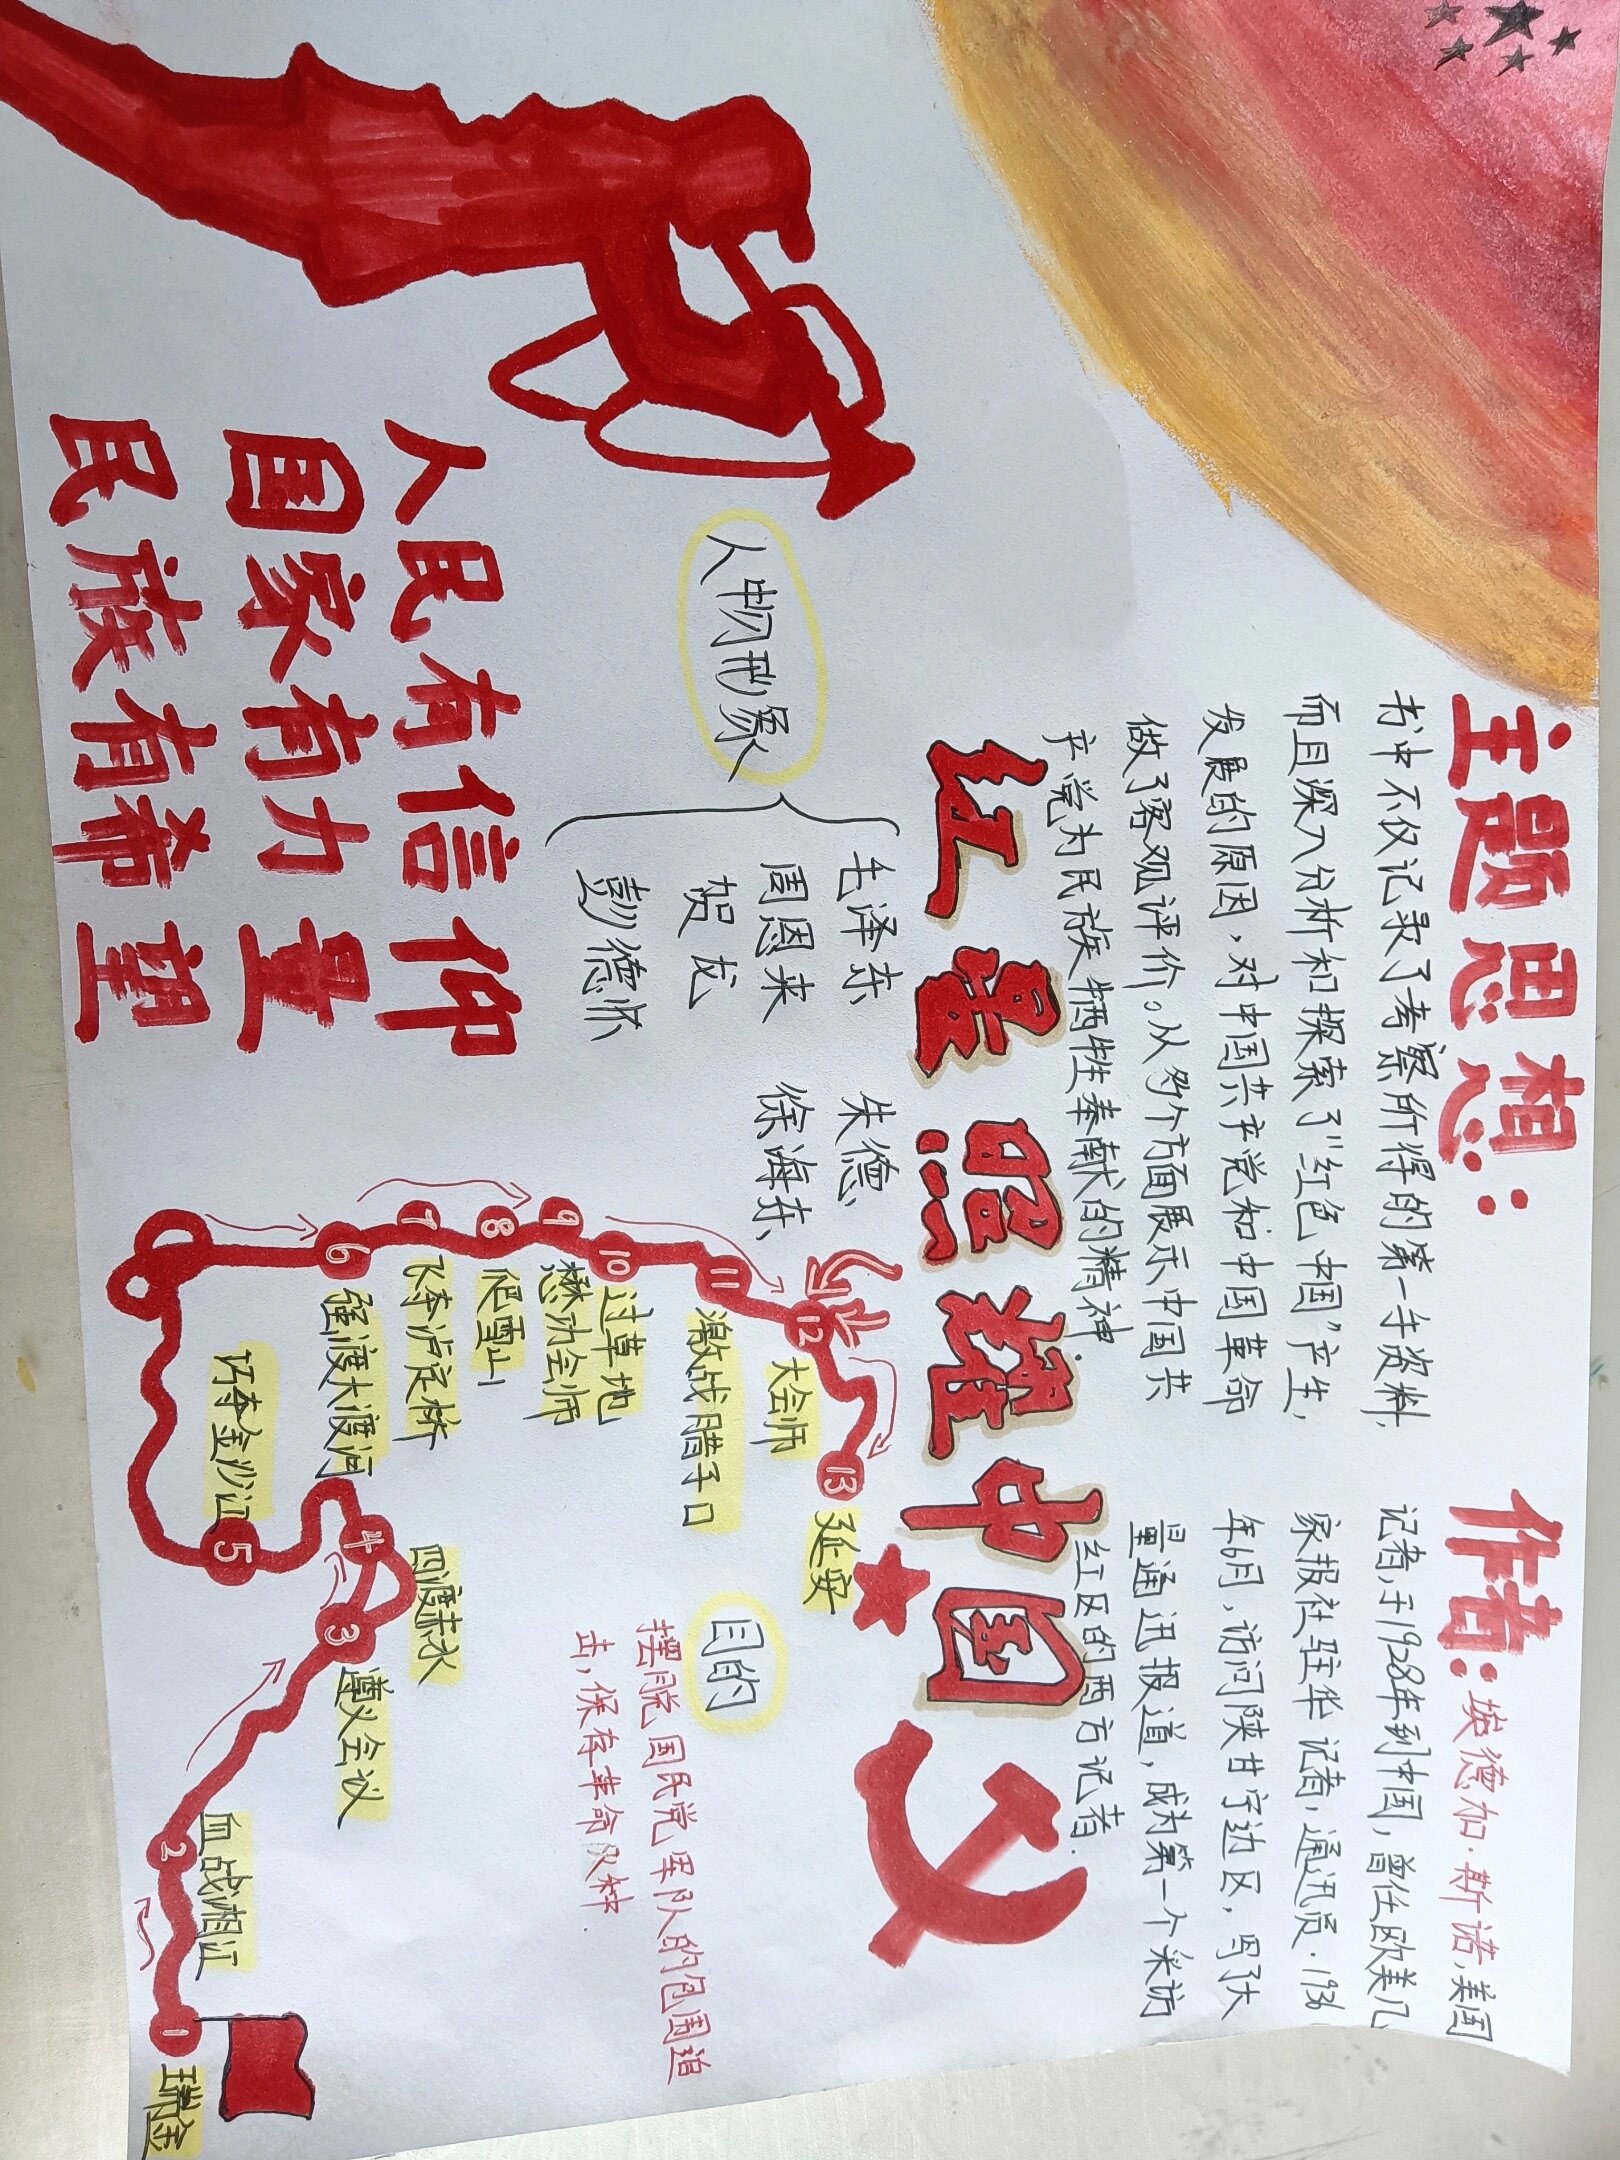 主题思想：
书中不仅记录了考察所得的第一手资料，
而且深入分析和探索了“红色中国”产生，
发展的原因，对中国共产党和中国革命
做了客观评价。从多个方面展示中国共
产党为民族牺牲奉献的精神.
作者：埃德加·斯诺，美国
记者，于1928年到中国，曾任欧美几
家报社驻华记者，通讯员.1936
年6月，访问陕甘宁边区，写了大
量通迅报道，成为第一个采访
红区的西方记者.
红星照耀中国
人物形象
毛泽东
周恩来
贺龙
彭德怀
朱德、
徐海东、
人民有信仰
国家有力量
民族有希望
目的
摆脱国民党军队人的包围追
击，保存革命火种.
13
延安
12
大会师
11
激战腊子口
10
过草地
9
懋功会师
8
爬雪山
7
飞夺泸定桥
6
强渡大渡河
5
巧夺金沙江
4
四渡赤水
3
遵义会议
2
血战湘江
1
瑞金